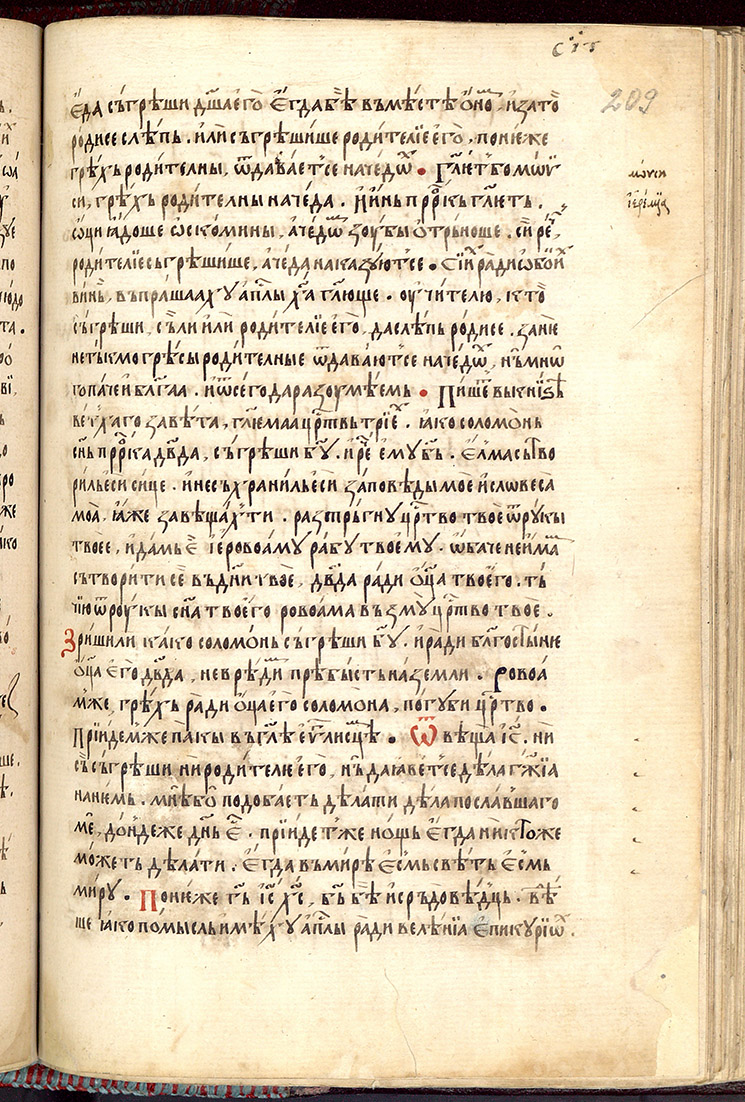 сıг
209
є҆да съгрѣши дш҃а є҆го̀ є҆гда бѣ̀ въ мѣстѣ ѻ҆но . и҆ за то̀
родисе слѣпь . и҆лѝ съгрѣшише родителїе є҆го̀ , понеже
грѣхъ родителны , ѿдаває́тсе на чедѡⷯ • Гл҃ет бо мѡѷ
си , грѣхъ родителны на чеда . и҆ и҆нь прⷪ҇ркь гл҃еть .
мѡѷси
і҆еремїа
ѻ҆ци ꙗ҆доше ѡ҆скомины , а҆ чедѡⷨ зоубы ѻ҆трьноше . си рⷺ҇ ,
родителїе съгрѣшише , а҆ чеда наказꙋютсе • Сїиⷯ ради ѡ҆боиⷯ
винь , въпрашаахꙋ а҆пⷭ҇лы хⷭ҇а гл҃юще . ѹ҆чителю , кто̀
съгрѣши , съ ли и҆лѝ родителїе є҆го̀ , да слѣпь родисе . зане
не тькмо грѣсы родителные ѿдаваютсе на чедѡⷯ , нъ мнѡ
гопаче и҆ бл҃гаа . и҆ ѿ сего да разоумѣемь • Пишеⷮ въ кнїѕѣ
ветхаго завѣта , гл҃емаа црⷭ҇твь трїеⷯ . ꙗ҆ко соломонь
сн҃ь прⷪ҇рка дв҃да , съгрѣши бг҃ꙋ . и҆ рⷺ҇ є҆мꙋ бг҃ь . є҆лма сътво
риль є҆си сице . и҆ не съхраниль є҆си заповѣды мое и҆ словеса
моа , ꙗ҆же завѣщаⷯ ти . растрьгнꙋ црⷭ҇тво твое ѿ рꙋкы
твоее , и҆ дамь є҆ і҆еровоамꙋ рабꙋ твоемꙋ . ѡ҆баче не и҆маⷨ
сътворити сѐ въ дн҃и твое , дв҃да ради ѻ҆ца твоего . ть
чїю ѿ роукы сн҃а твоего ровоама възмꙋ црⷭ҇тво твое .
Зриши ли како соломонь съгрѣши бг҃ꙋ . и҆ ради бл҃гостыние
ѻ҆ца є҆го дв҃да , неврѣдиⷨ прѣбысть на земли . ровоа
мже , грѣхъ ради ѻ҆ца є҆го соломона , погуби црⷭ҇тво •
Прїидемже пакы въ гл҃ѐ є҆ѵⷢ҇лискⷶ҇ѣ • Ѿвѣща і҆с҃ . ни
съ съгрѣши ни родителе є҆го , нъ да ꙗ҆ветсе дѣла бж҃їа
на немь . мнѣ бо̀ подобаеть дѣлати дѣла пославшаго
ме , дондеже дн҃ь є҆ⷭ҇ . прїидетже нощь є҆гда никтоже
можеть дѣлати . є҆гда въ мирѣ є҆смь свѣть є҆смь
мирꙋ . Понеже гь҃ і҆с҃ хс҃ , бг҃ь бѣ̀ и҆ срⷣцовѣдць . вѣⷣ
ше ꙗ҆ко помысль и҆мѣхꙋ а҆пⷭ҇лы ради велѣнїа є҆пикꙋрїѡⷨ .